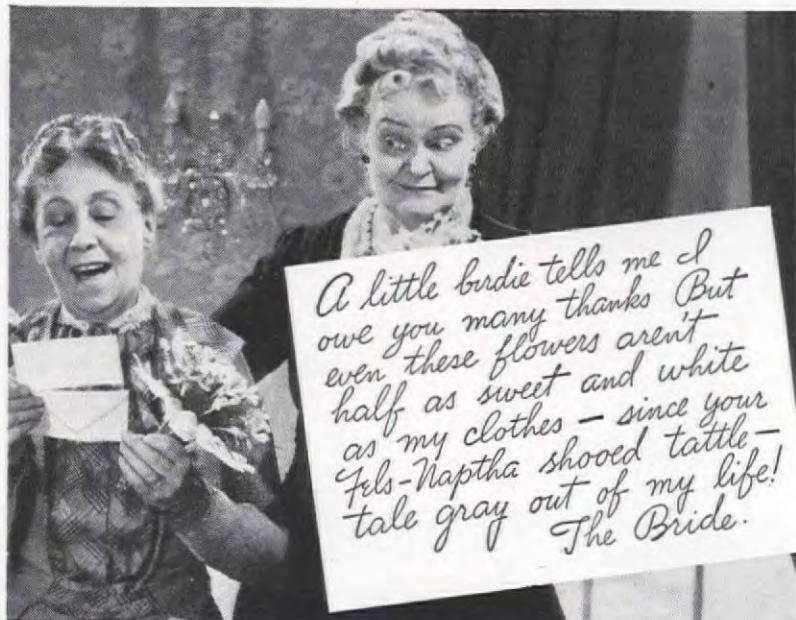 A little birdie tells me I
owe you many thanks But
even these flowers aren't
half as sweet and white
as my clothes — since your
Fels-Naptha shooed tattle-
tale gray out of my life!
The Bride.